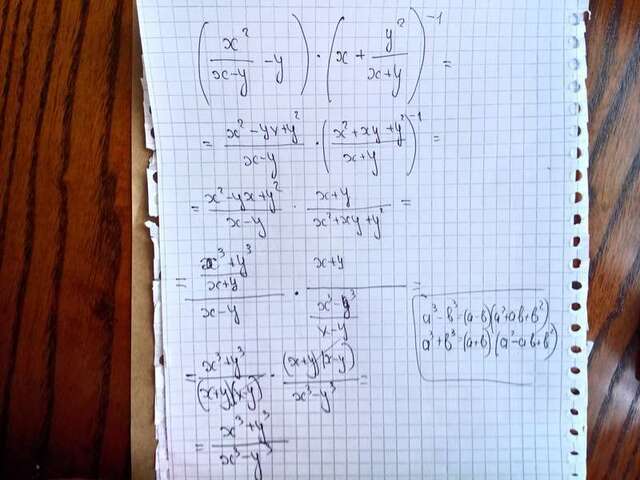 (x²/(x-y) - y) · (x + y²/(x+y))⁻¹ =
= (x²-yx+y²)/(x-y) · ((x²+xy+y²)/(x+y))⁻¹ =
= (x²-yx+y²)/(x-y) · (x+y)/(x²+xy+y²) =
= ((x³+y³)/(x+y))/(x-y) · (x+y)/((x³-y³)/(x-y)) =
a³-b³=(a-b)(a²+ab+b²)
a³+b³=(a+b)(a²-ab+b²)
= (x³+y³)/((x+y)(x-y)) · ((x+y)(x-y))/(x³-y³) =
= (x³+y³)/(x³-y³)